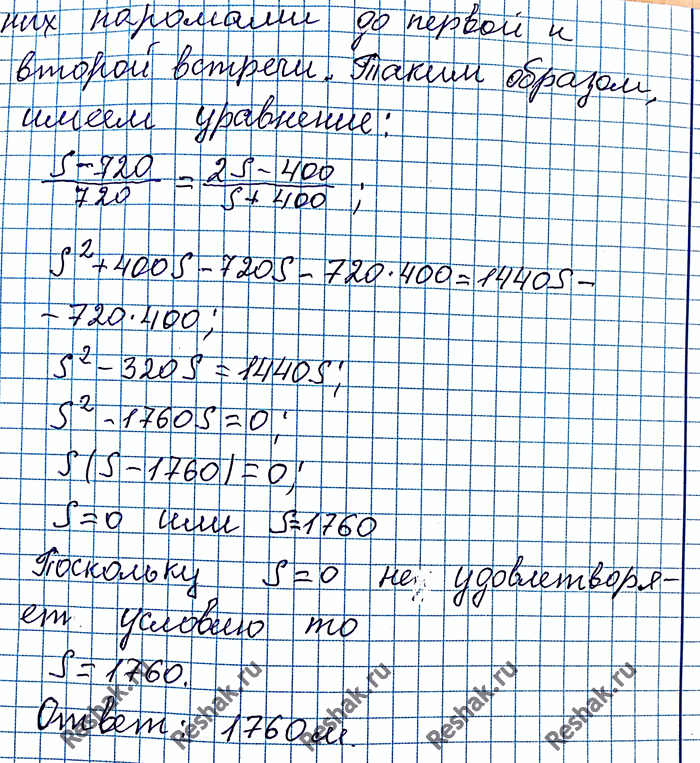 них паромами до первой и
второй встречи. Таким образом,
имеем уравнение:
S-720/720 = 2S-400/S+400;
S²+400S-720S-720·400=1440S-
-720·400;
S²-320S=1440S;
S²-1760S=0;
S(S-1760)=0;
S=0 или S=1760
Поскольку S=0 не удовлетворя-
ет условию то
S=1760.
Ответ: 1760м.
Reshak.ru Reshak.ru Reshak.ru Reshak.ru Reshak.ru